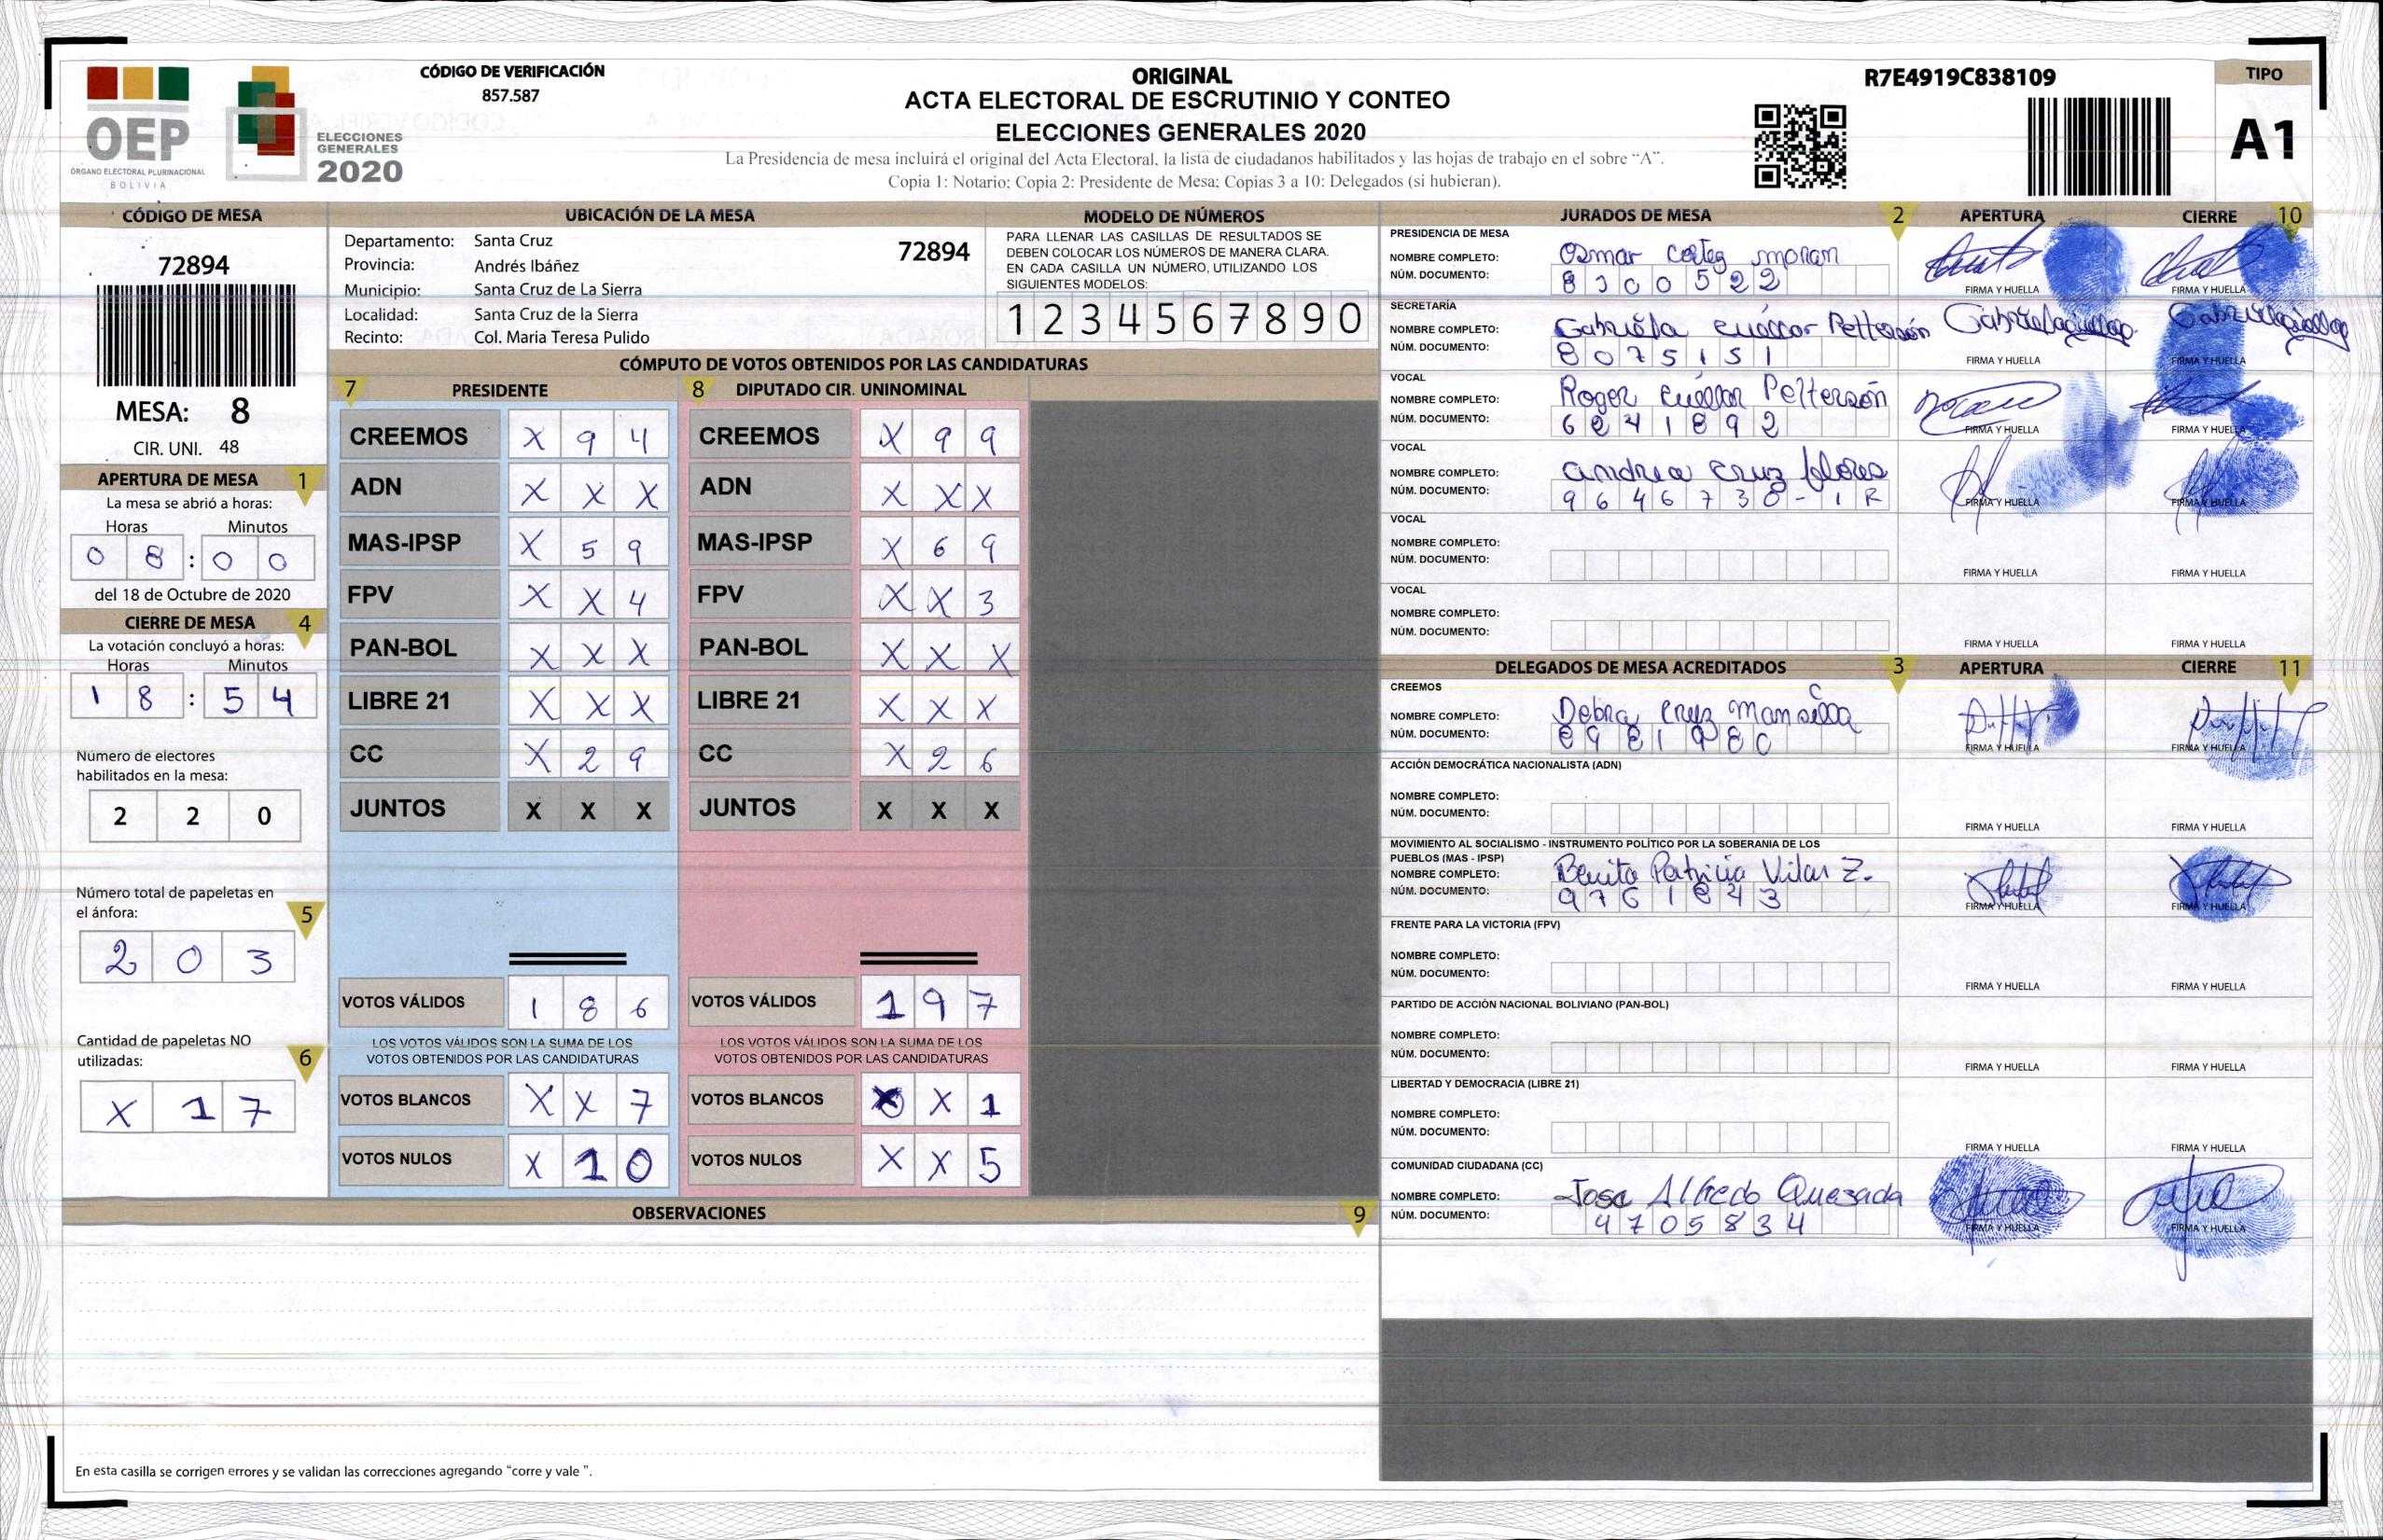 OEP
ÓRGANO ELECTORAL PLURINACIONAL
BOLIVIA
ELECCIONES
GENERALES
2020
CÓDIGO DE VERIFICACIÓN
857.587
ORIGINAL
ACTA ELECTORAL DE ESCRUTINIO Y CONTEO
ELECCIONES GENERALES 2020
La Presidencia de mesa incluirá el original del Acta Electoral, la lista de ciudadanos habilitados y las hojas de trabajo en el sobre “A”.
Copia 1: Notario; Copia 2: Presidente de Mesa; Copias 3 a 10: Delegados (si hubieran).
R7E4919C838109
TIPO
A1
CÓDIGO DE MESA
72894
MESA: 8
CIR. UNI. 48
APERTURA DE MESA 1
La mesa se abrió a horas:
Horas Minutos
0 8 : 0 0
del 18 de Octubre de 2020
CIERRE DE MESA 4
La votación concluyó a horas:
Horas Minutos
1 8 : 5 4
Número de electores
habilitados en la mesa:
2 2 0
Número total de papeletas en
el ánfora: 5
2 0 3
Cantidad de papeletas NO
utilizadas: 6
X 1 7
UBICACIÓN DE LA MESA
Departamento: Santa Cruz 72894
Provincia: Andrés Ibáñez
Municipio: Santa Cruz de La Sierra
Localidad: Santa Cruz de la Sierra
Recinto: Col. Maria Teresa Pulido
MODELO DE NÚMEROS
PARA LLENAR LAS CASILLAS DE RESULTADOS SE
DEBEN COLOCAR LOS NÚMEROS DE MANERA CLARA.
EN CADA CASILLA UN NÚMERO, UTILIZANDO LOS
SIGUIENTES MODELOS:
1 2 3 4 5 6 7 8 9 0
CÓMPUTO DE VOTOS OBTENIDOS POR LAS CANDIDATURAS
7 PRESIDENTE
CREEMOS X 9 4
ADN X X X
MAS-IPSP X 5 9
FPV X X 4
PAN-BOL X X X
LIBRE 21 X X X
CC X 2 9
JUNTOS X X X
VOTOS VÁLIDOS 1 8 6
LOS VOTOS VÁLIDOS SON LA SUMA DE LOS
VOTOS OBTENIDOS POR LAS CANDIDATURAS
VOTOS BLANCOS X X 7
VOTOS NULOS X 1 0
8 DIPUTADO CIR. UNINOMINAL
CREEMOS X 9 9
ADN X X X
MAS-IPSP X 6 9
FPV X X 3
PAN-BOL X X X
LIBRE 21 X X X
CC X 2 6
JUNTOS X X X
VOTOS VÁLIDOS 1 9 7
LOS VOTOS VÁLIDOS SON LA SUMA DE LOS
VOTOS OBTENIDOS POR LAS CANDIDATURAS
VOTOS BLANCOS X X 1
VOTOS NULOS X X 5
OBSERVACIONES 9
En esta casilla se corrigen errores y se validan las correcciones agregando “corre y vale ”.
JURADOS DE MESA 2 APERTURA CIERRE 10
PRESIDENCIA DE MESA
NOMBRE COMPLETO: Osmar Cortez moran
NÚM. DOCUMENTO: 8 3 0 0 5 2 2
FIRMA Y HUELLA FIRMA Y HUELLA
SECRETARÍA
NOMBRE COMPLETO: Gabriela cuéllar Petterson
NÚM. DOCUMENTO: 8 0 7 5 1 5 1
FIRMA Y HUELLA FIRMA Y HUELLA
VOCAL
NOMBRE COMPLETO: Roger cuéllar Petterson
NÚM. DOCUMENTO: 6 2 4 1 8 9 2
FIRMA Y HUELLA FIRMA Y HUELLA
VOCAL
NOMBRE COMPLETO: andrea cruz flores
NÚM. DOCUMENTO: 9 6 4 6 7 3 0 - 1 R
FIRMA Y HUELLA FIRMA Y HUELLA
VOCAL
NOMBRE COMPLETO:
NÚM. DOCUMENTO:
FIRMA Y HUELLA FIRMA Y HUELLA
VOCAL
NOMBRE COMPLETO:
NÚM. DOCUMENTO:
FIRMA Y HUELLA FIRMA Y HUELLA
DELEGADOS DE MESA ACREDITADOS 3 APERTURA CIERRE 11
CREEMOS
NOMBRE COMPLETO: Debra Cruz Mansilla
NÚM. DOCUMENTO: 8 9 8 1 9 8 0
FIRMA Y HUELLA FIRMA Y HUELLA
ACCIÓN DEMOCRÁTICA NACIONALISTA (ADN)
NOMBRE COMPLETO:
NÚM. DOCUMENTO:
FIRMA Y HUELLA FIRMA Y HUELLA
MOVIMIENTO AL SOCIALISMO - INSTRUMENTO POLÍTICO POR LA SOBERANIA DE LOS
PUEBLOS (MAS - IPSP)
NOMBRE COMPLETO: Benita Patricia Vilar Z.
NÚM. DOCUMENTO: 9 7 6 1 8 4 3
FIRMA Y HUELLA FIRMA Y HUELLA
FRENTE PARA LA VICTORIA (FPV)
NOMBRE COMPLETO:
NÚM. DOCUMENTO:
FIRMA Y HUELLA FIRMA Y HUELLA
PARTIDO DE ACCIÓN NACIONAL BOLIVIANO (PAN-BOL)
NOMBRE COMPLETO:
NÚM. DOCUMENTO:
FIRMA Y HUELLA FIRMA Y HUELLA
LIBERTAD Y DEMOCRACIA (LIBRE 21)
NOMBRE COMPLETO:
NÚM. DOCUMENTO:
FIRMA Y HUELLA FIRMA Y HUELLA
COMUNIDAD CIUDADANA (CC)
NOMBRE COMPLETO: Jose Alfredo Quezada
NÚM. DOCUMENTO: 4 7 0 5 8 3 4
FIRMA Y HUELLA FIRMA Y HUELLA